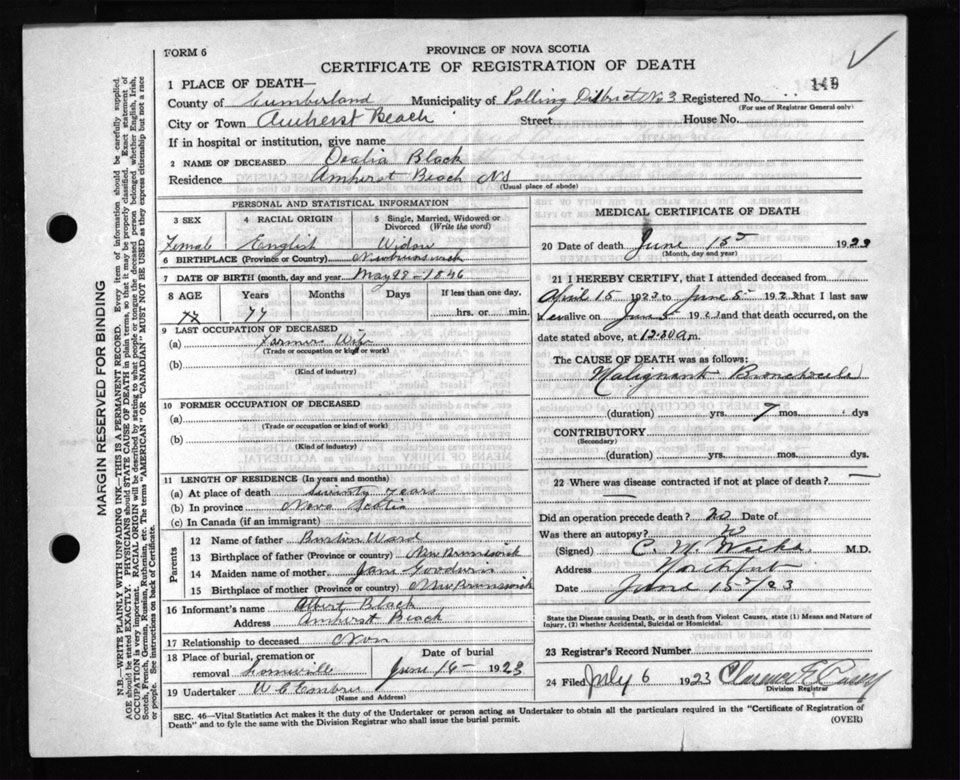 FORM 6
PROVINCE OF NOVA SCOTIA
CERTIFICATE OF REGISTRATION OF DEATH
149
1 PLACE OF DEATH—
County of Cumberland Municipality of Polling District No 3 Registered No.
(For use of Registrar General only)
City or Town Amherst Beach Street House No.
If in hospital or institution, give name
2 NAME OF DECEASED Dealia Black
Residence Amherst Beach NS
(Usual place of abode)
PERSONAL AND STATISTICAL INFORMATION
3 SEX 4 RACIAL ORIGIN 5 Single, Married, Widowed or Divorced (Write the word)
Female English Widow
6 BIRTHPLACE (Province or Country) Newbrunswick
7 DATE OF BIRTH (month, day and year) May 28-1846
8 AGE Years Months Days If less than one day,
77 hrs. or min.
9 LAST OCCUPATION OF DECEASED
(a) Farmer Wife
(Trade or occupation or kind of work)
(b)
(Kind of industry)
10 FORMER OCCUPATION OF DECEASED
(a)
(Trade or occupation or kind of work)
(b)
(Kind of industry)
11 LENGTH OF RESIDENCE (In years and months)
(a) At place of death years
(b) In province Nova Scotia
(c) In Canada (if an immigrant)
Parents
12 Name of father Burton Ward
13 Birthplace of father (Province or country) New Brunswick
14 Maiden name of mother Jane Goodwin
15 Birthplace of mother (Province or country) New Brunswick
16 Informant's name Albert Black
Address Amherst Beach
17 Relationship to deceased
18 Place of burial, cremation or removal Date of burial
June 16- 1923
19 Undertaker W C Embree
(Name and Address)
MEDICAL CERTIFICATE OF DEATH
20 Date of death June 15 1923
(Month, day and year)
21 I HEREBY CERTIFY, that I attended deceased from
April 15 1923 to June 5 1923 that I last saw
alive on June 192 and that death occurred, on the
date stated above, at 12.30 a m.
The CAUSE OF DEATH was as follows:
Malignant Bronchocele
(duration) yrs. 7 mos. dys
CONTRIBUTORY
(Secondary)
(duration) yrs. mos. dys
22 Where was disease contracted if not at place of death?
Did an operation precede death? no Date of
Was there an autopsy? no
(Signed) C. M. M.D.
Address Northport
Date June 15/23
State the Disease causing Death, or in death from Violent Causes, state (1) Means and Nature of Injury, (2) whether Accidental, Suicidal or Homicidal.
23 Registrar's Record Number
24 Filed July 6 1923 Clarence E Casey
Division Registrar
SEC. 46—Vital Statistics Act makes it the duty of the Undertaker or person acting as Undertaker to obtain all the particulars required in the "Certificate of Registration of
Death" and to fyle the same with the Division Registrar who shall issue the burial permit.
(OVER)
MARGIN RESERVED FOR BINDING
N.B.—WRITE PLAINLY WITH UNFADING INK—THIS IS A PERMANENT RECORD. Every item of information should be carefully supplied.
AGE should be stated EXACTLY. PHYSICIANS should STATE CAUSE OF DEATH in plain terms, so that it may be properly classified. Exact statement of
OCCUPATION is very important. RACIAL ORIGIN will be described by stating to what people or tongue the deceased person belonged whether English, Irish,
Scotch, French, German, Russian, Ruthenian, etc. The terms "AMERICAN" OR "CANADIAN" MUST NOT BE USED as they express citizenship but not a race
or people. See instructions on back of Certificate.